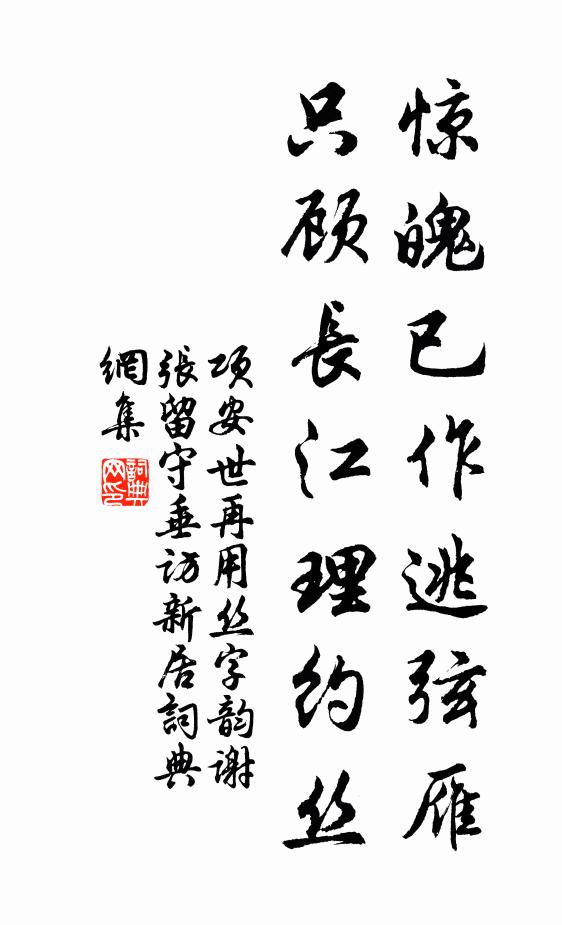 惊魄已作逃弦雁
只顾長江理约丝
项安世再用丝字韵谢
張留守垂访新居詞典
網集
詞典
网印